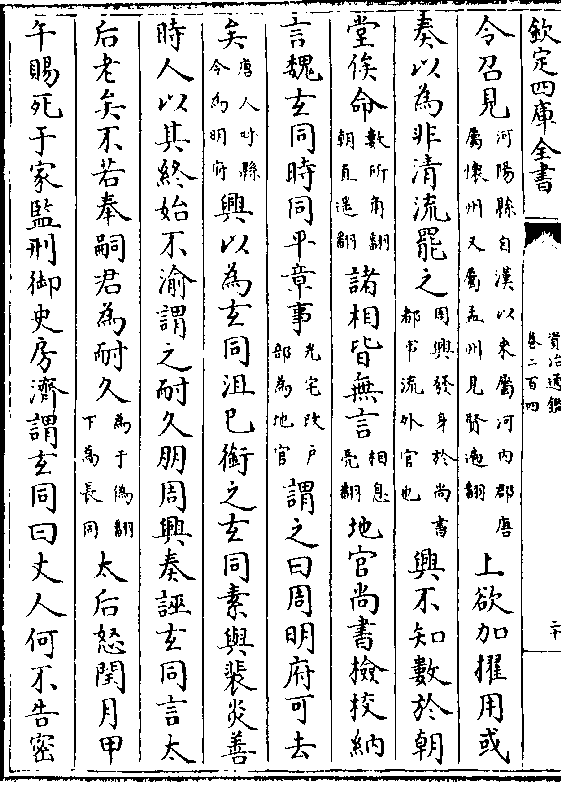 欽定四庫全書
資治通鑑
卷二百四
二十
令召見河陽縣自漢以來屬河内郡唐屬懷州又屬孟州見賢遍翻上欲加擢用或
奏以為非清流罷之周興發身於尚書都事流外官也興不知數於朝
堂俟命數所角翻朝直遥翻諸相皆無言相息亮翻地官尚書檢校納
言魏玄同時同平章事光宅改戶部為地官謂之曰周明府可去
矣唐人呼縣令為明府興以為玄同沮已銜之玄同素與裴炎善
時人以其終始不渝謂之耐久朋周興奏誣玄同言太
后老矣不若奉嗣君為耐久為于偽翻下為長同太后怒閏月甲
午賜死于家監刑御史房濟謂玄同曰丈人何不告密